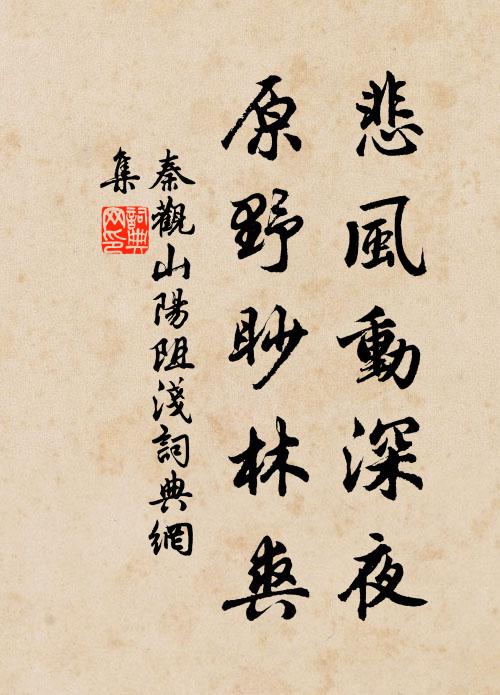 悲風動深夜
原野眇林爽
秦觀山陽阻淺詞典網
集
詞典網印